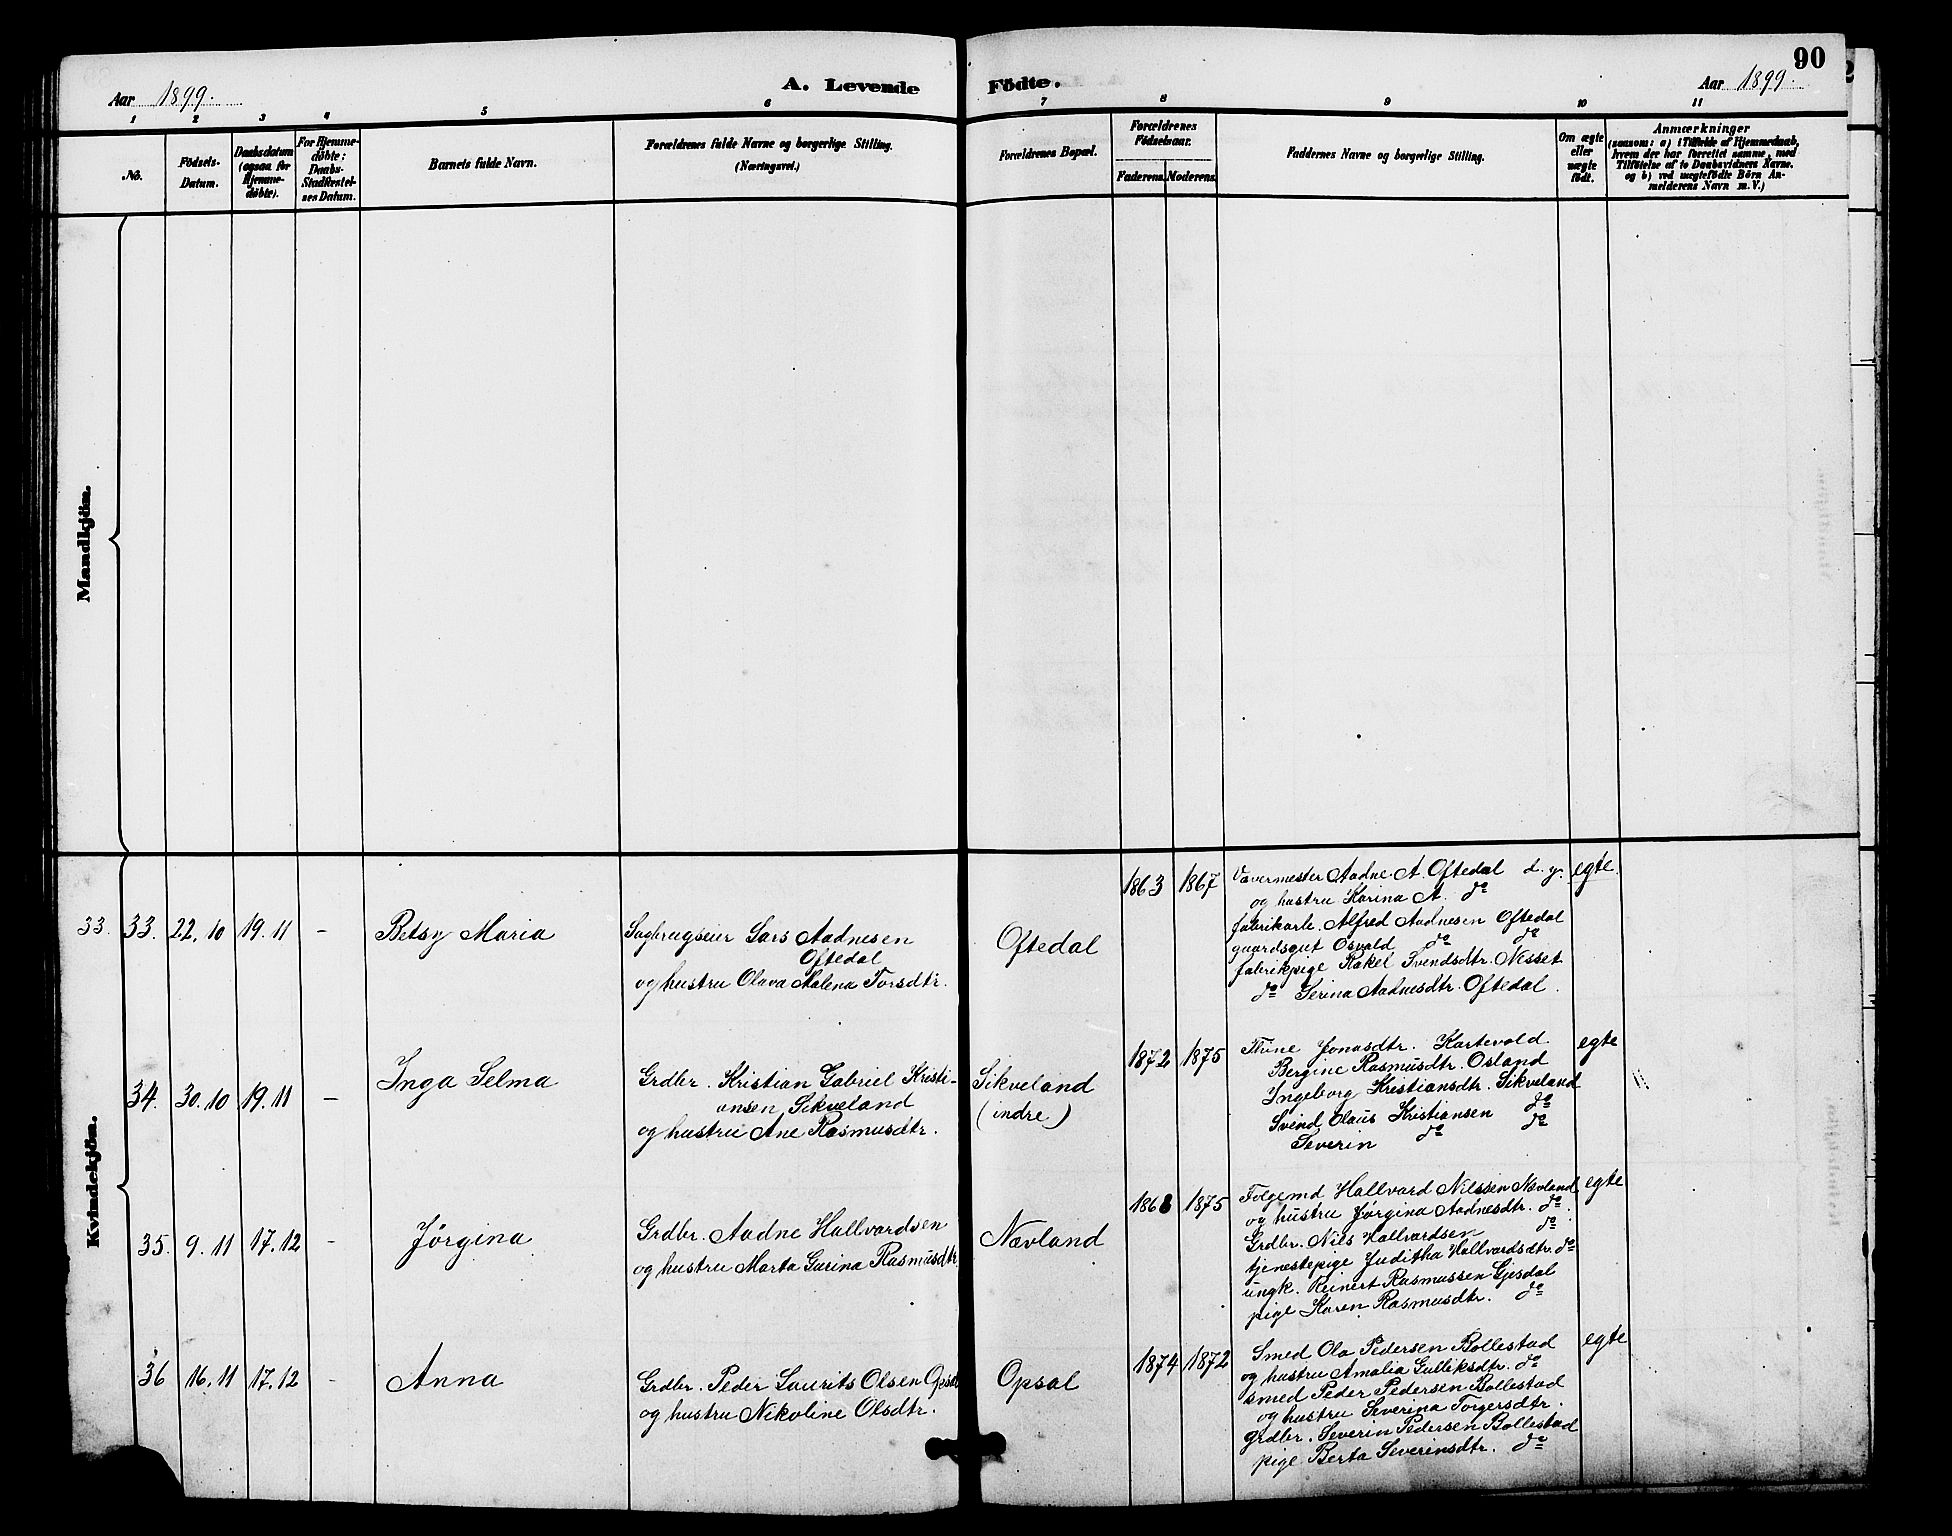 90
Aar 1899.
A. Levende Födte.
Aar 1899.
1 2 3 4 5 6 7 8 9 10 11
No.
Födsels-
Datum.
Daabsdatum
(ogsaa for
Hjemme-
døbte).
For Hjemme-
døbte:
Daabs-
Stadfæstel-
ses Datum.
Barnets fulde Navn.
Forældrenes fulde Navne og borgerlige Stilling.
(Næringsvei.)
Forældrenes Bopæl.
Forældrenes
Födselsaar.
Faderens. Moderens.
Faddernes Navne og borgerlige Stilling.
Om ægte
eller
uægte
født.
Anmærkninger
(saasom: a) i Tilfælde af Hjemmedaab,
hvem der har forrettet samme, med
Tilføielse af to Daabsvidners Navne,
og b) ved uægtefødte Börn An-
melderens Navn m. V.)
Mandkjön.
Kvindekjön.
33. 33. 22.10 19.11 -
Betsy Maria
Sagbrugseier Lars Aadnesen
Oftedal
og hustru Olava Malena Torsdtr.
Oftedal
1863 1867
Vævermester Aadne A. Oftedal d. y.
og hustru Karina A. do
fabrikarb. Alfred Aadnesen Oftedal
gaardsgut Osvald do do
fabrikpige Rakel Svendsdtr. Nesset
do Serina Aadnesdtr. Oftedal.
egte.
34. 30.10 19.11 -
Inga Selma
Grdbr. Kristian Gabriel Kristi-
ansen Sikveland
og hustru Ane Rasmusdtr.
Sikveland
(indre)
1872 1875
Thine Jonasdtr. Kartevold
Bergine Rasmusdtr. Osland
Ingeborg Kristiansdtr. Sikveland
Svend Olaus Kristiansen do
Severin do do
egte
35. 9.11 17.12 -
Jørgina
Grdbr. Aadne Hallvardsen
og hustru Marta Gurina Rasmusdtr.
Nævland
1868 1875
Folgemd Hallvard Nilssen Nævland
og hustru Jørgina Aadnesdtr. do.
Grdbr. Nils Hallvardsen do
tjenestepige Juditha Hallvardsdtr. do
ungk. Reinert Rasmussen Gjesdal
pige Karen Rasmusdtr. do
egte
36 16.11 17.12 -
Anna
Grdbr. Peder Laurits Olsen Opsal
og hustru Nikoline Olsdtr.
Opsal
1874 1872
Smed Ola Pedersen Bollestad
og hustru Amalia Gulliksdtr. do
smed Peder Pedersen Bollestad
og hustru Severina Torgersdtr.
grdbr. Severin Pedersen Bollestad
pige Berta Severinsdtr. do
egte